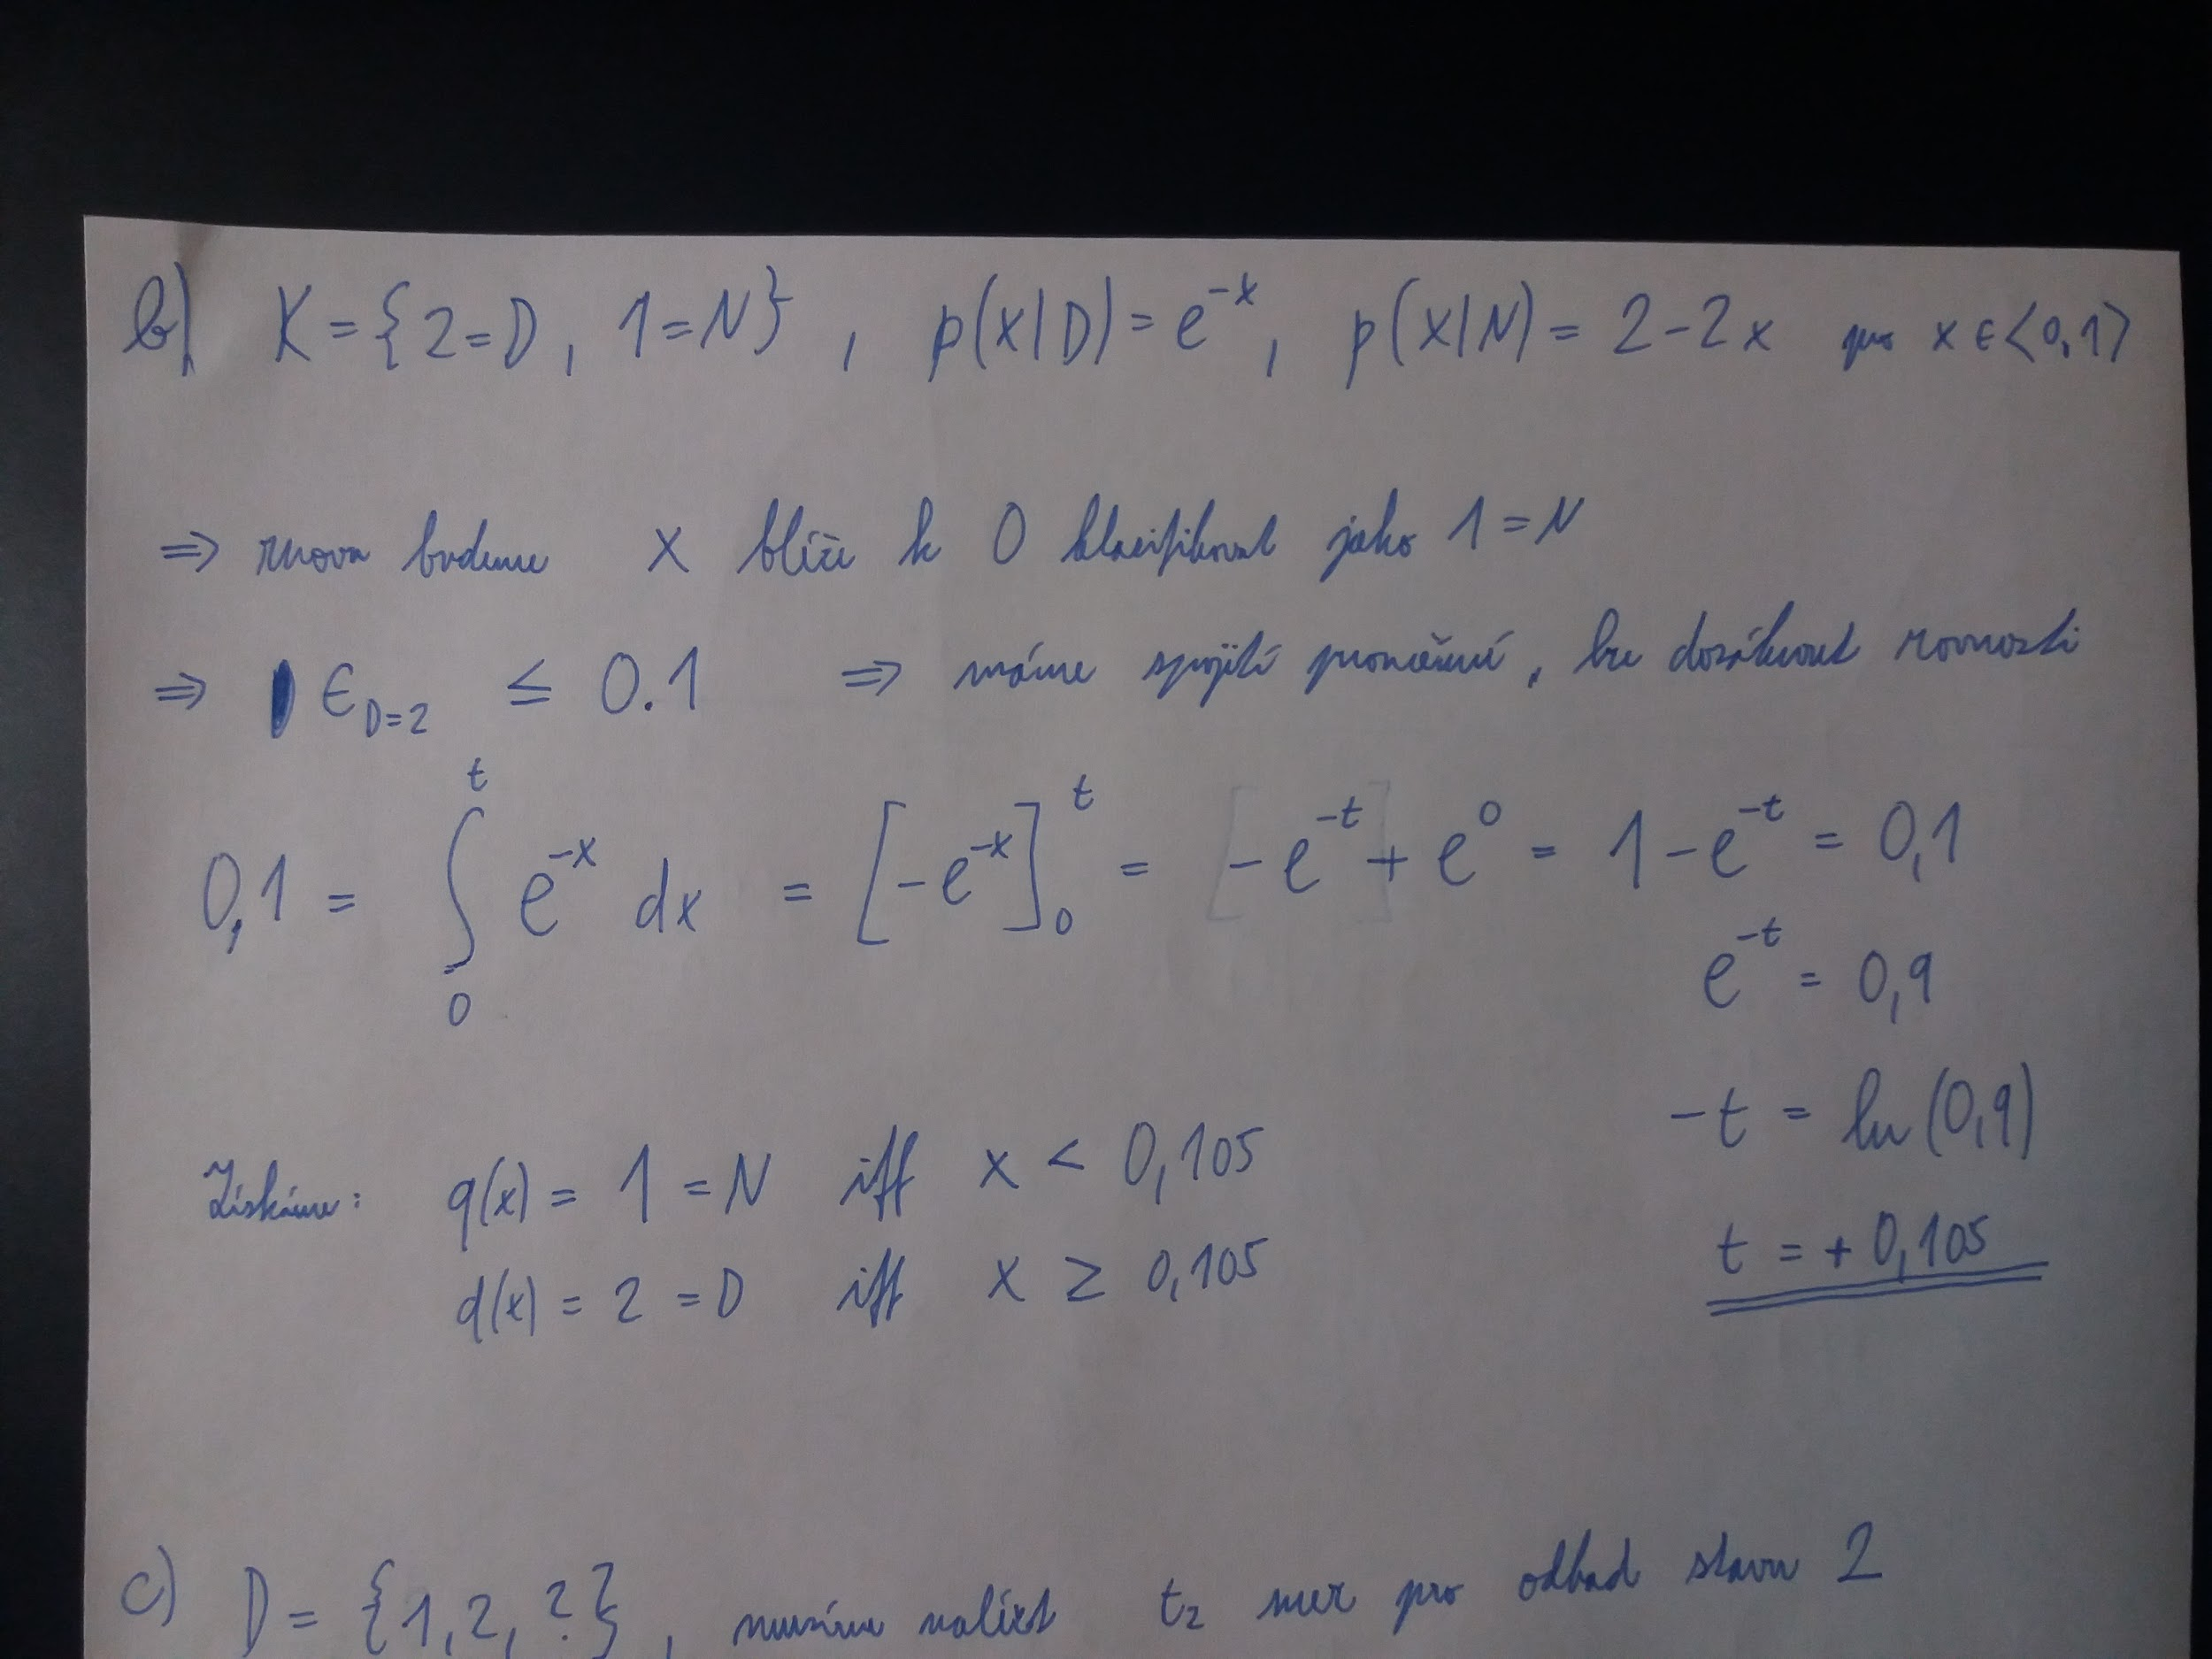 b) K = {2=D, 1=N}, p(x|D) = e^{-x}, p(x|N) = 2-2x pro x ∈ <0,1>
⇒ znova budeme x blíže k 0 klasifikovat jako 1 = N
⇒ ϵ_{D=2} ≤ 0.1 ⇒ máme spojité proměnné, lze dosáhnout rovnosti
0,1 = ∫_0^t e^{-x} dx = [-e^{-x}]_0^t = -e^{-t} + e^0 = 1 - e^{-t} = 0,1
e^{-t} = 0,9
-t = ln(0,9)
t = +0,105
Získáme: q(x) = 1 = N iff x < 0,105
d(x) = 2 = D iff x ≥ 0,105
c) D = {1,2,?}, musíme nalézt t_2 mez pro odhad stavu 2